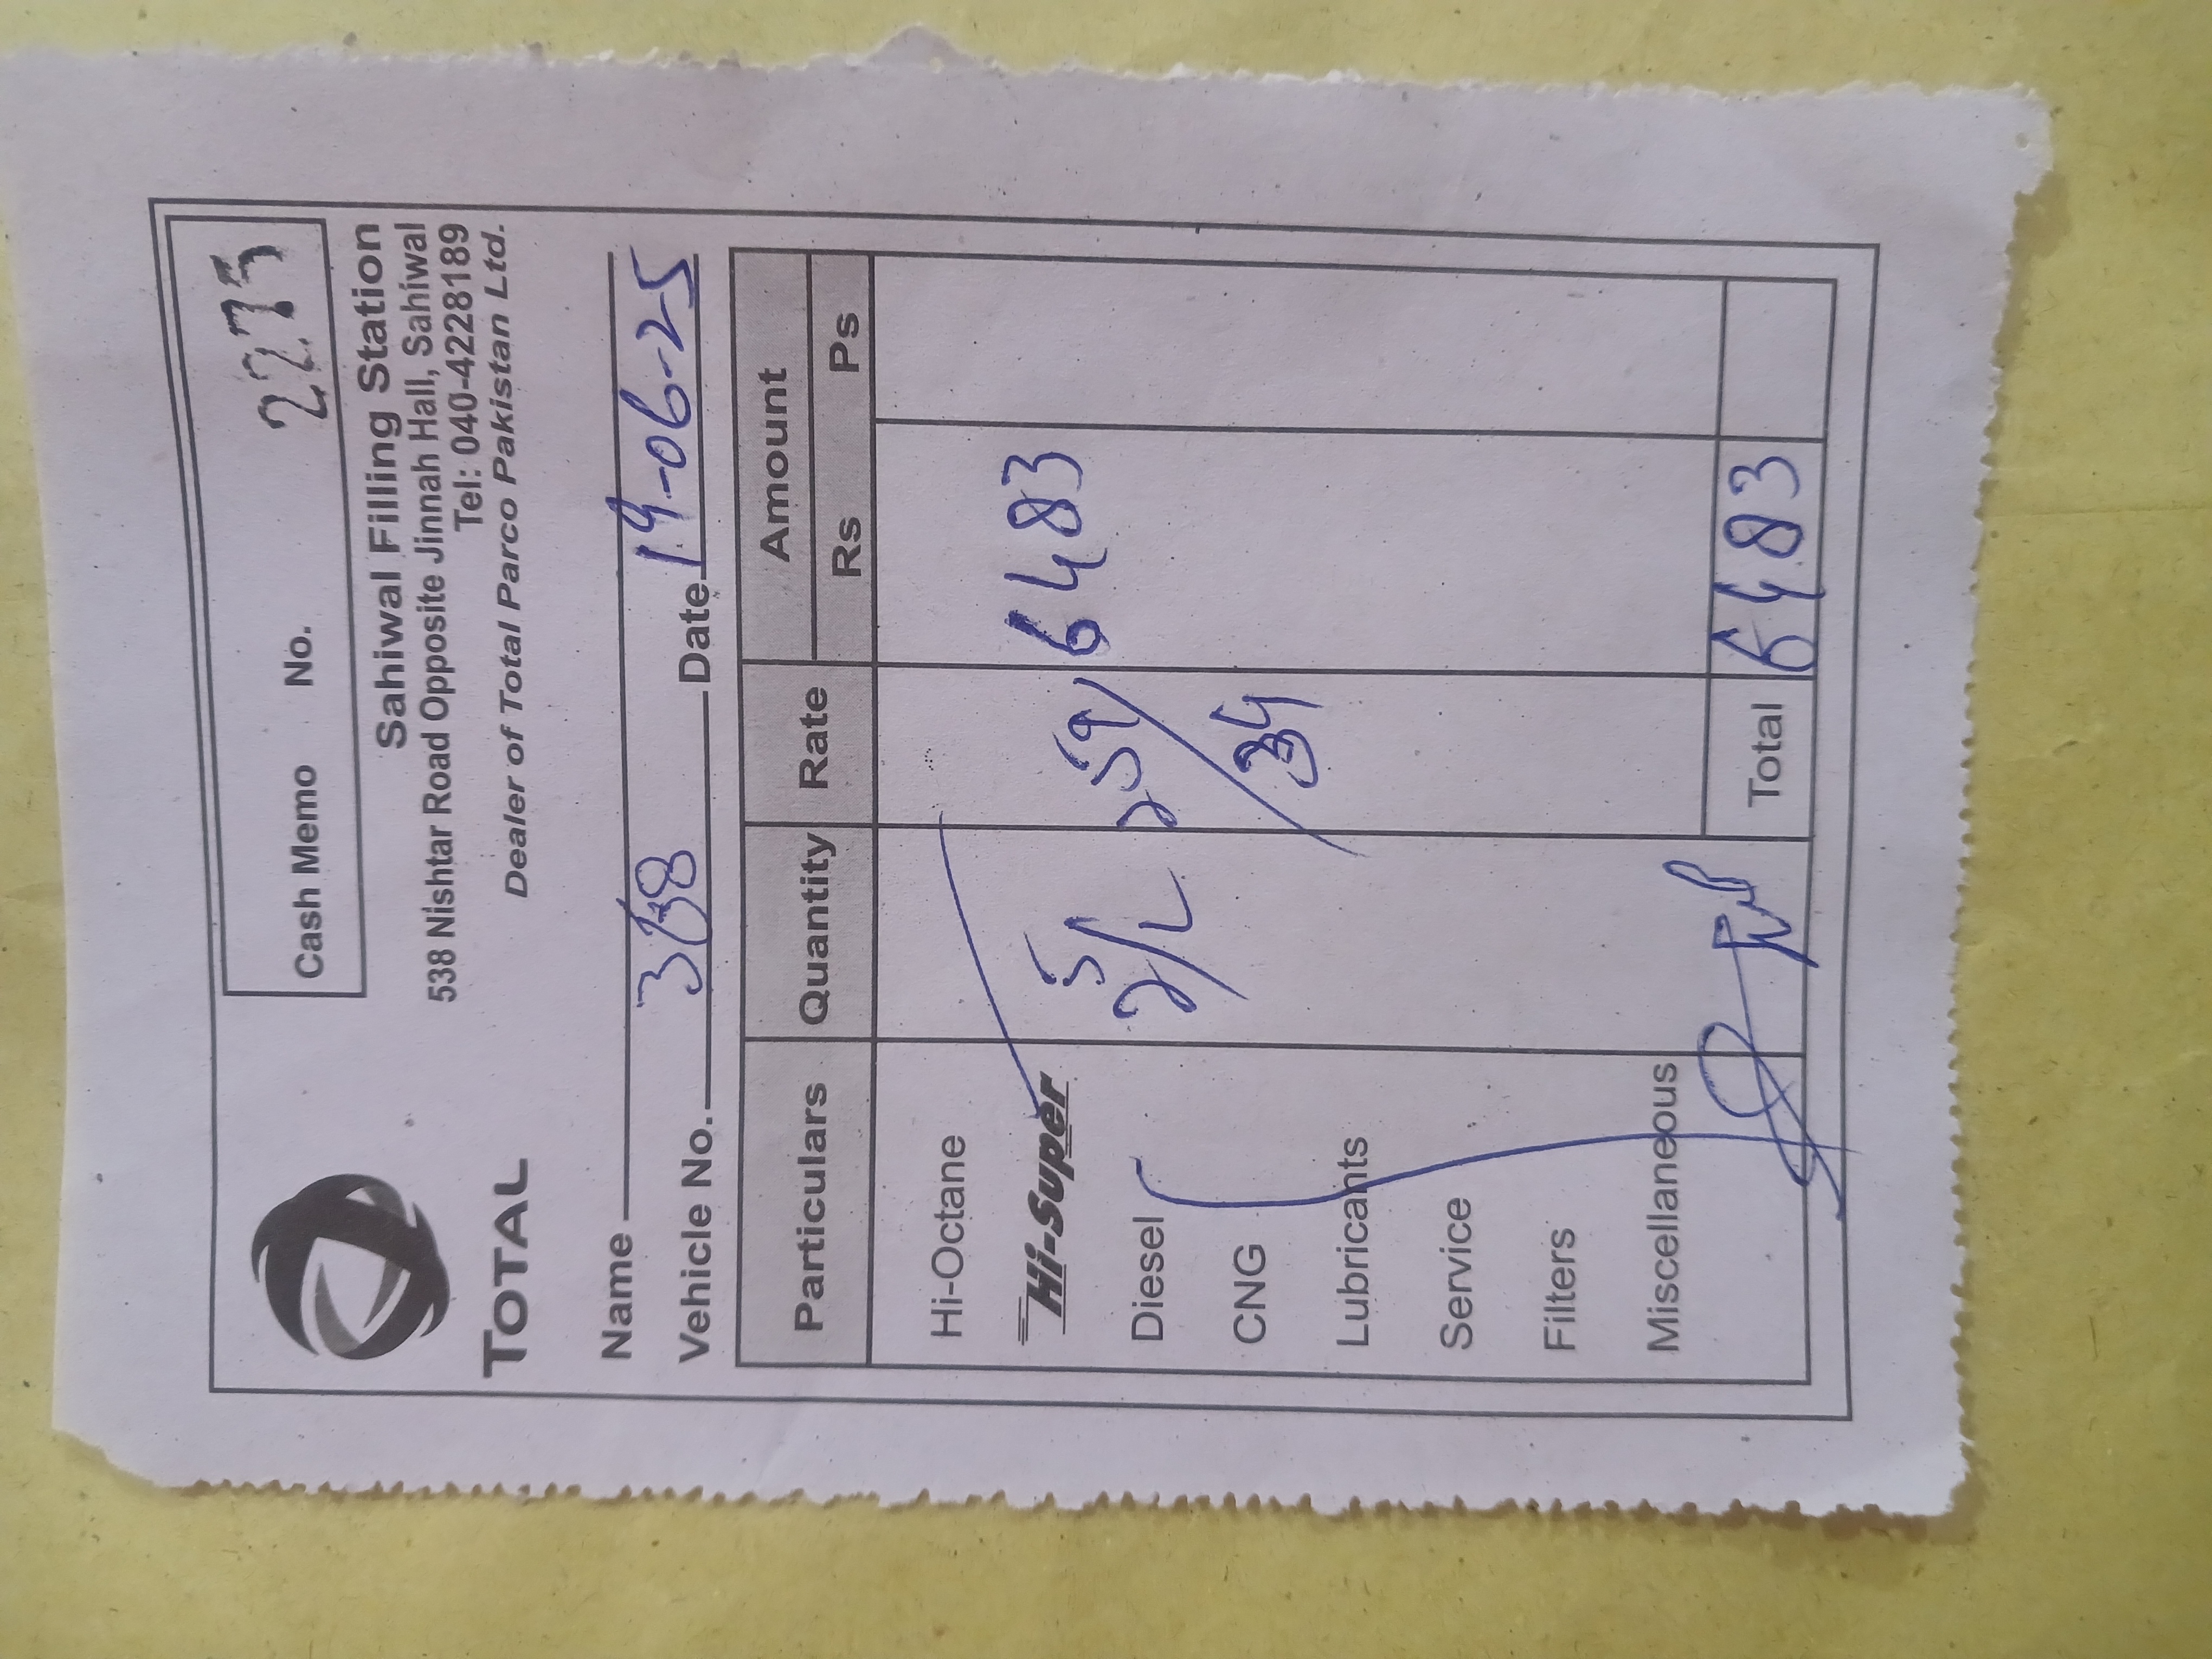 Cash Memo No. 2275
TOTAL
Sahiwal Filling Station
538 Nishtar Road Opposite Jinnah Hall, Sahiwal
Tel: 040-4228189
Dealer of Total Parco Pakistan Ltd.
Name
Vehicle No. Date 19-06-25
Particulars Quantity Rate Amount
Rs Ps
Hi-Octane
Hi-Super 25/L 259/34 6483
Diesel
CNG
Lubricants
Service
Filters
Miscellaneous
Total 6483